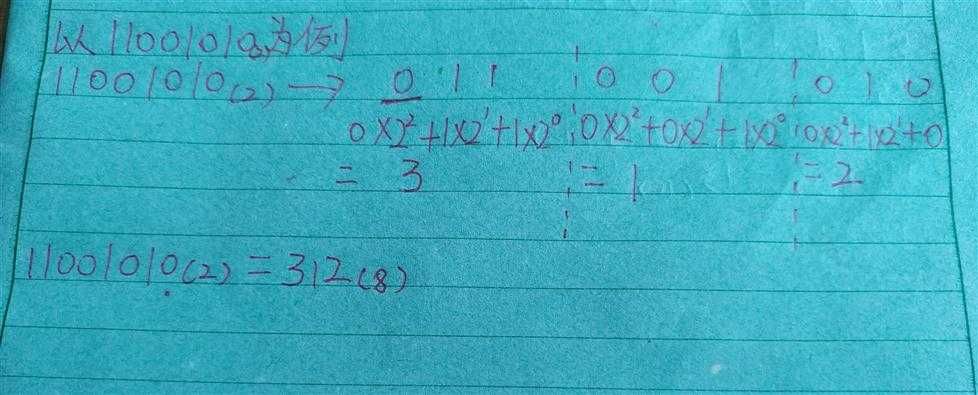 以11001010(2)为例
11001010(2) → 011 ¦ 001 ¦ 010
0×2²+1×2¹+1×2⁰ ¦ 0×2²+0×2¹+1×2⁰ ¦ 0×2²+1×2¹+0
= 3 ¦ = 1 ¦ = 2
11001010(2) = 312(8)